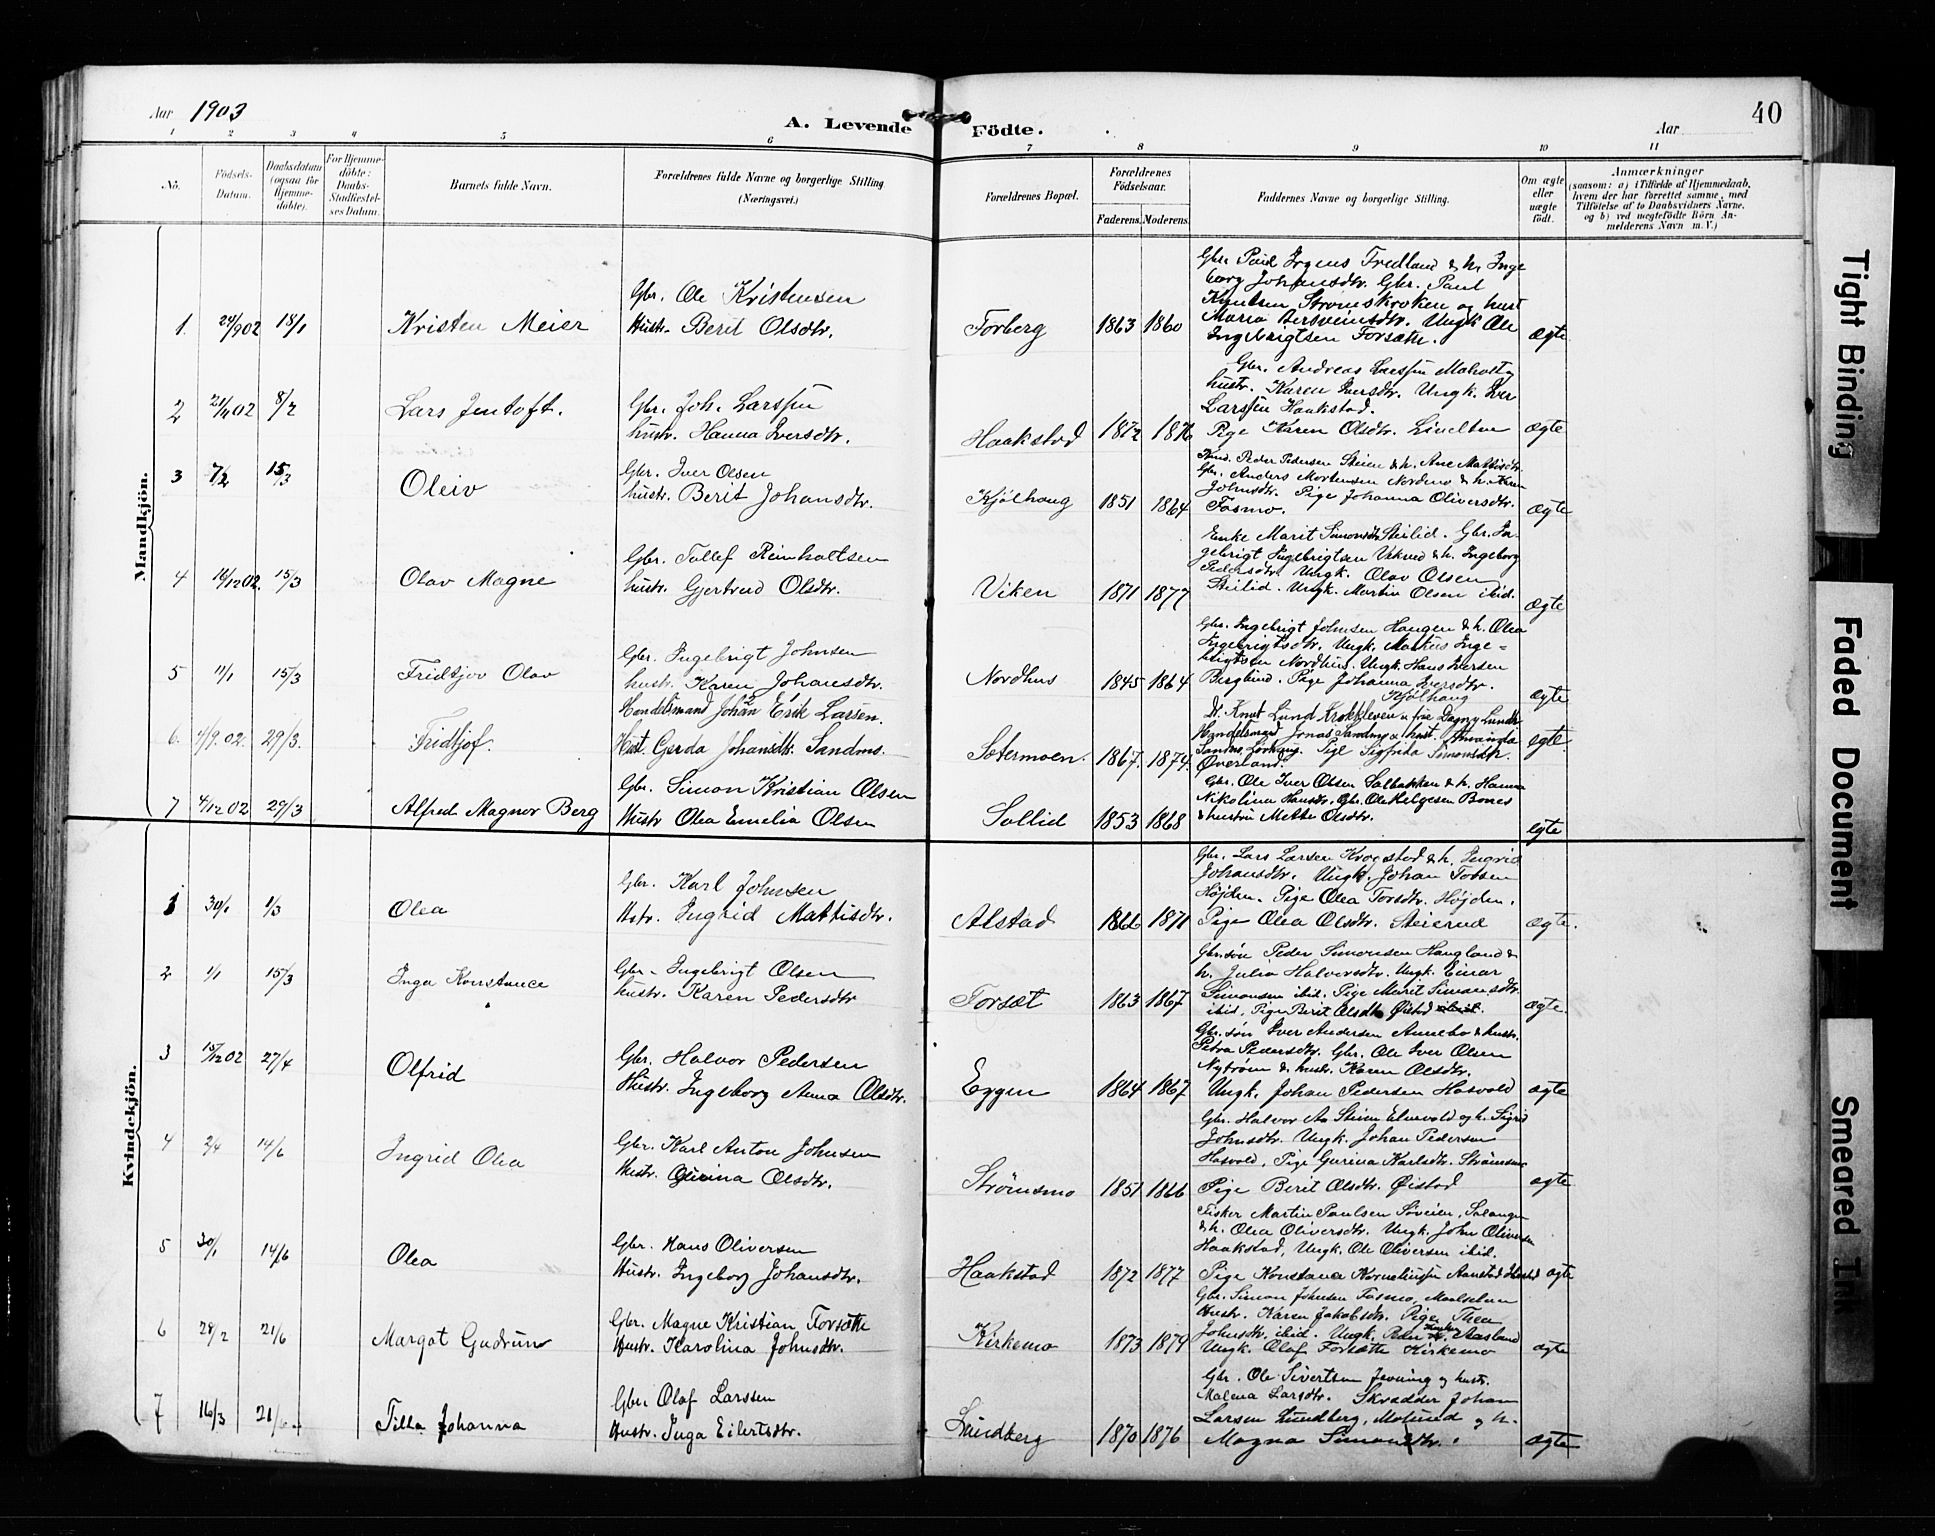 Aar 1903
A. Levende Födte.
Aar
40
1 2 3 4 5 6 7 8 9 10 11
No.
Födsels-Datum.
Daabsdatum (ogsaa for Hjemme-döbte).
For Hjemme-döbte: Daabs-Stadfæstel-ses Datum.
Barnets fulde Navn.
Forældrenes fulde Navne og borgerlige Stilling (Næringsvei.)
Forældrenes Bopæl.
Forældrenes Födselsaar.
Faderens. Moderens.
Faddernes Navne og borgerlige Stilling.
Om ægte eller uægte födt.
Anmærkninger
(saasom: a) i Tilfælde af Hjemmedaab, hvem der har forrettet samme, med Tilföielse af to Daabsvidners Navne, og b) ved uægtefödte Börn An-melderens Navn m. V.)
Mandkjön.
1. 24/9 02 18/1 Kristen Meier
Gbr. Ole Kristensen
Hustr. Berit Olsdtr.
Forberg 1863 1860
Gbr. Paul Irgens Fredland & h. Inge
borg Johansdtr. Gbr. Paul
Knutsen Strømskroken og hust
Maria Bersveinsdtr. Ungk Ole
Ingebrigtsen Forsæth.
ægte
2 21/11 02 8/2 Lars Jentoft.
Gbr. Joh. Larssen
hustr. Hanna Iversdtr.
Haakstad 1872 1876
Gbr. Andreas Larssen Moholt og
hustr. Karen Iversdtr. Ungk. Iver
Larssen Haakstad.
Pige Karen Olsdtr. Lindtun
ægte
3 7/2 15/3 Oleiv
Gbr. Iver Olsen
hustr. Berit Johansdtr.
Kjølhaug 1851 1864
Peder Pedersen Steien & h. Ane Mattisdtr.
Gbr. Anders Mortensen Nordmo & h. Karen
Johnsdtr. Pige Johanna Oliversdtr.
Fosmo.
ægte
4 16/12 02. 15/3 Olav Magne
Gbr. Tollef Reinholtsen
hustr. Gjertrud Olsdtr.
Viken 1871 1877
Enke Marit Simonsdtr Steilid. Gbr. In-
gebrigt Ingebrigtsen Vikned & h. Ingeborg
Pedersdtr. Ungk. Olav Olsen
Steilid. Ungk. Martin Olsen ibid.
ægte
5 11/1 15/3 Fridtjov Olav
Gbr. Ingebrigt Johnsen
hustr. Karen Johansdtr.
Nordhus 1845 1864
Gbr. Ingebrigt Johnsen Haugen & h. Olea
Ingebrigtsdtr. Ungk. Markus Inge-
brigtsen Nordhus. Ungk. Hans Iversen
Berglund. Pige Johanna Iversdtr.
Kjølhaug
ægte
6. 4/9. 02. 29/3. Fridtjof.
Handelsmand Johan Erik Larsen.
Hust. Gerda Johansdtr. Sandmo.
Setermoen. 1867. 1874.
Dr. Knut Lund Krokkleven og frue Dagny Lund.
Handelsmand Jonas Sandmo & hust. Amanda
Sandmo, Lorhaug. Pige Sigfrida Simonsdtr.
Øverland.
egte
7 4/12 02 29/3 Alfred Magnor Berg
Gbr. Simon Kristian Olsen
Hustr Olea Emelia Olsen
Sollid 1853 1868
Gbr. Ole Iver Olsen Solbakken & h. Hanna
Nikolina Hansdtr. Gbr. Ole Helgesen Bones
& hustru Mette Olsdtr.
egte
Kvindekjön.
1 30/1 1/3 Olea
Gbr. Karl Johnsen
Hstr. Ingrid Mattisdtr.
Alstad 1866 1871
Gbr. Lars Larsen Krogstad & h. Ingrid
Johansdtr. Ungk. Johan Torsen
Højden. Pige Olea Torsdtr. Højden.
Pige Olea Olsdtr. Steierud
ægte.
2 1/1 15/3 Inga Konstance
Gbr. Ingebrigt Olsen
hustr. Karen Pedersdtr
Forsæt 1863 1867
Gbr.søn Peder Simonsen Haugland &
h. Julia Halvorsdtr. Ungk. Einar
Simonsen ibid. Pige Marit Simonsdtr.
ibid. Pige Berit Olsdtr Øistad
ægte.
3 15/12 02 27/4 Olfrid
Gbr. Halvor Pedersen
Hustr. Ingeborg Anna Olsdtr.
Eggen 1864 1867
Gbr.søn Iver Andersen Annebo & hustr.
Petra Pedersdtr. Gbr. Ole Iver Olsen
Nystrøm & hustr. Karen Olsdtr.
Ungk. Johan Pedersen Hasvold
ægte
4 2/4 14/6 Ingrid Olea
Gbr. Karl Anton Johnsen
Hustr. Gurina Olsdtr.
Strømsmo 1851 1866
Gbr. Halvor As Steien Elvevold og h. Sigrid
Johnsdtr. Ungk. Johan Pedersen
Hasvold, Pige Gurina Karlsdtr. Strømsmo
Pige Berit Olsdtr. Øistad
ægte
5 30/1 14/6 Olea
Gbr. Hans Oliversen
Hustr. Ingeborg Johansdtr.
Haakstad 1872 1877
Fisker Martin Paulsen Søveien, Salangen
& h. Olea Oliversdtr. Ungk. John Oliversen
Haakstad, Ungk. Ole Oliversen ibid.
Pige Konstance Kornelinssen Aanstad
ægte
6 28/2 21/6 Margot Gudrun
Gbr. Magne Kristian Forsæth
Hustr. Karolina Johnsdtr.
Kirkemo 1873 1879
Gbr. Simon Johnsen Fosmo, Maalselven
Hustr. Karen Jakobsdtr. Pige Thea
Johnsdtr. ibid. Ungk. Peder Aasland
Ungk. Olaf Forsæth Kirkemo
ægte
7 16/3 21/6 Tilla Johanna
Gbr. Olaf Larssen
Hustr. Inga Eilertsdtr.
Lundberg 1870 1876
Gbr. Ole Sivertsen Jevning og hustr.
Malena Larsdtr. Skrædder Johan
Larsen Lundberg, Molund og h.
Magna Simonsdtr.
ægte
Tight Binding
Faded Document
Smeared Ink